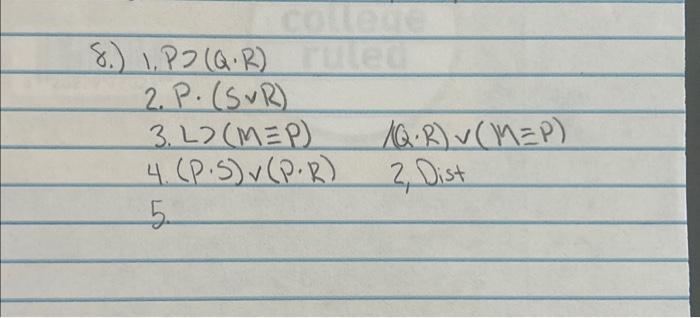 college
ruled
8.) 1. P⊃(Q·R)
2. P·(S∨R)
3. L⊃(M≡P) /(Q·R)∨(M≡P)
4. (P·S)∨(P·R) 2, Dist
5.